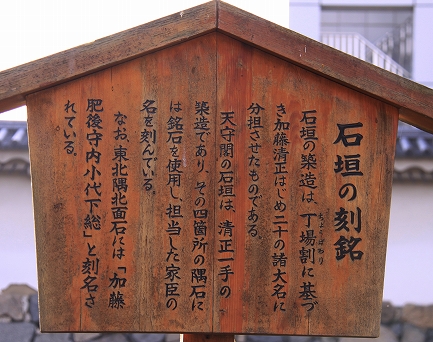 石垣の刻銘
石垣の築造は、丁場割に基づ
ちょうばわり
き加藤清正はじめ二十の諸大名に
分担させたものである。
天守閣の石垣は、清正一手の
築造であり、その四箇所の隅石に
は銘石を使用し、担当した家臣の
名を刻んでいる。
なお、東北隅北面石には「加藤
肥後守内小代下総」と刻名さ
れている。